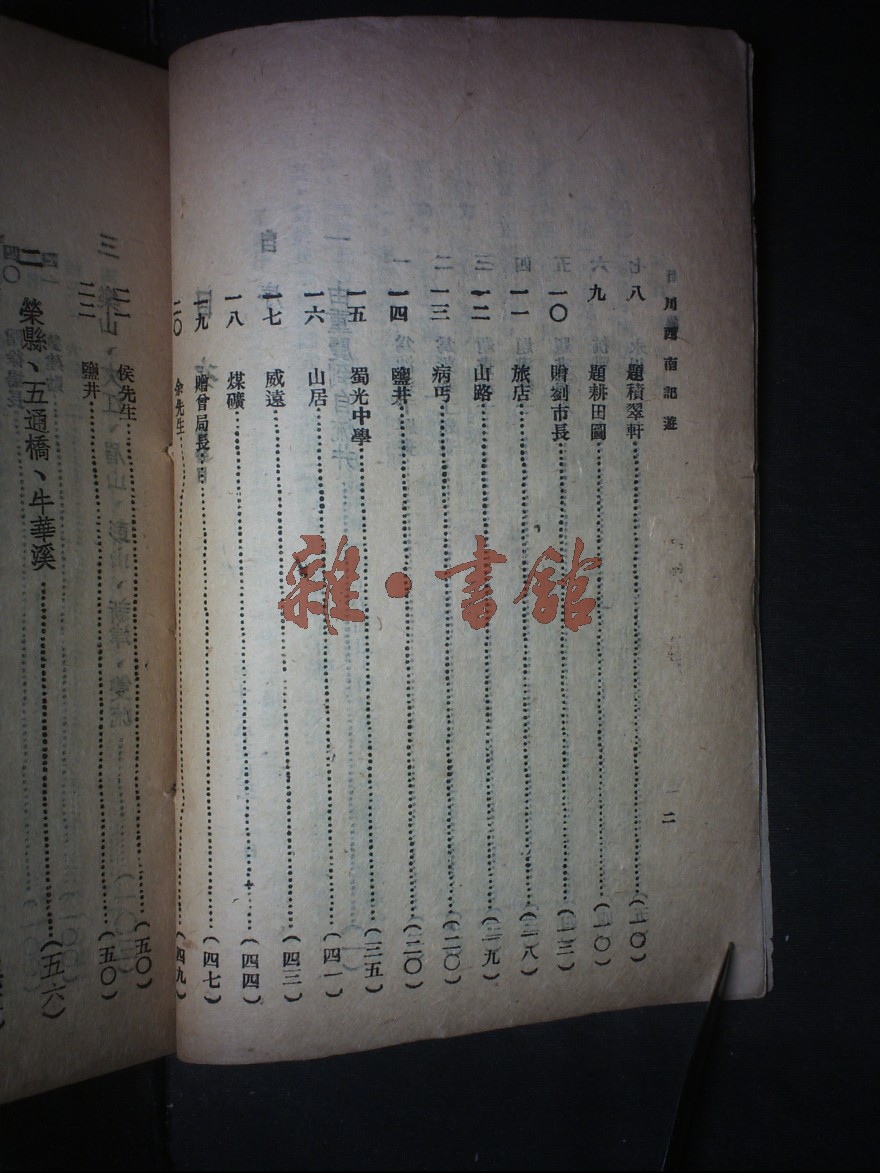 川西南記遊
二
八 題積翠軒 (一〇)
九 題耕田圖 (一〇)
一〇 贈劉市長 (一三)
一一 旅店 (一八)
一二 山路 (一九)
一三 病丐 (二〇)
一四 鹽井 (二〇)
一五 蜀光中學 (三五)
一六 山居 (四一)
一七 威遠 (四三)
一八 煤礦 (四四)
一九 贈曾局長 (四七)
二〇 余先生 (四九)
二一 侯先生 (五〇)
二二 鹽井 (五〇)
二 榮縣、五通橋、牛華溪 (五六)
雜·書館